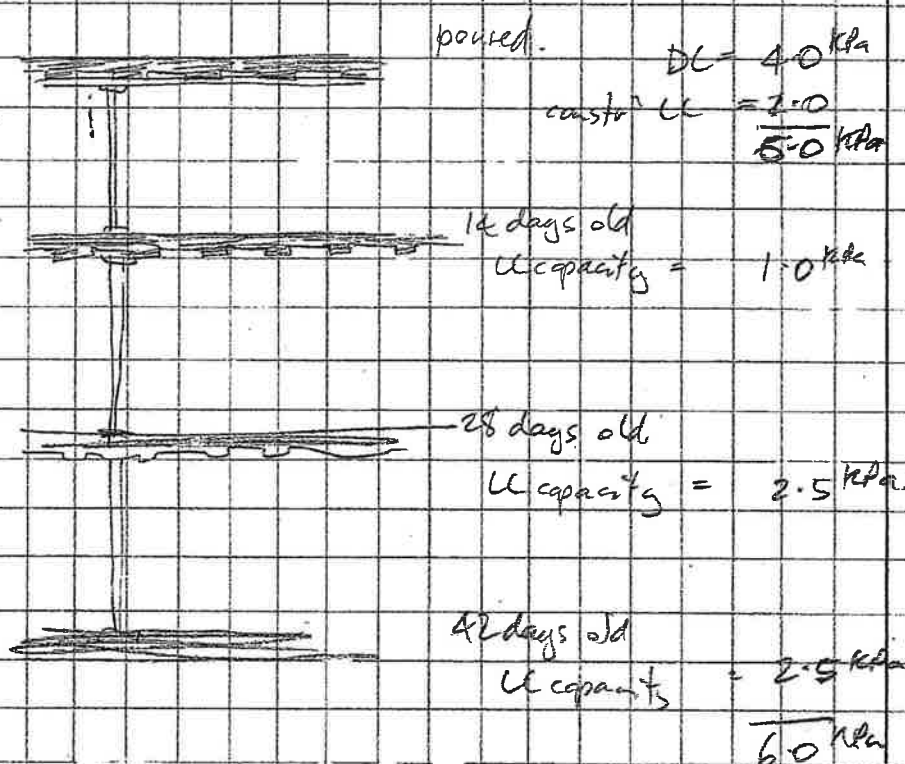 poured.
DL = 4.0 kPa
constrn LL = 2.0
6.0 kPa
14 days old
LL capacity = 1.0 kPa
28 days old
LL capacity = 2.5 kPa.
42 days old
LL capacity = 2.5 kPa
6.0 kPa